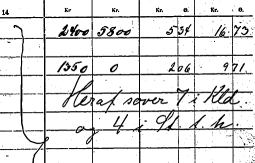 14 Kr. Kr. Kr. Ø. Kr. Ø.
2400 5800 534 16 73
1350 0 206 9 71
Heraf sover 7 i Kld
og 4 i St. t. h.